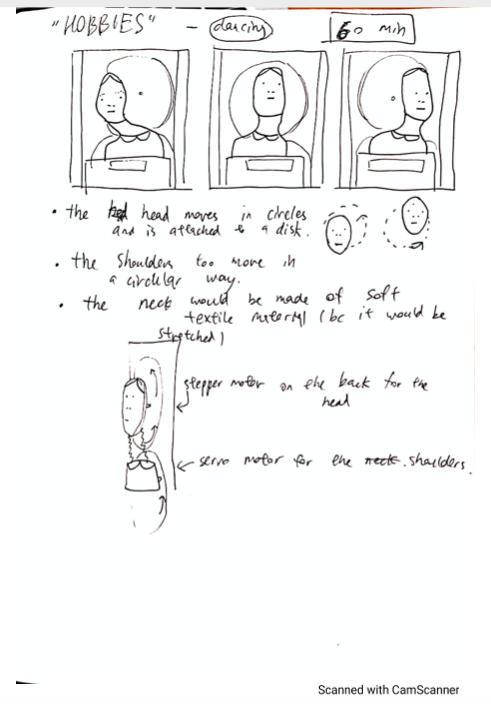 "HOBBIES" - dancing 60 min
• the head moves in circles
and is attached to a disk.
• the shoulders too move in
a circular way.
• the neck would be made of soft
textile material (bc it would be
stretched)
stepper motor on the back for the
head
servo motor for the neck. shoulders.
Scanned with CamScanner